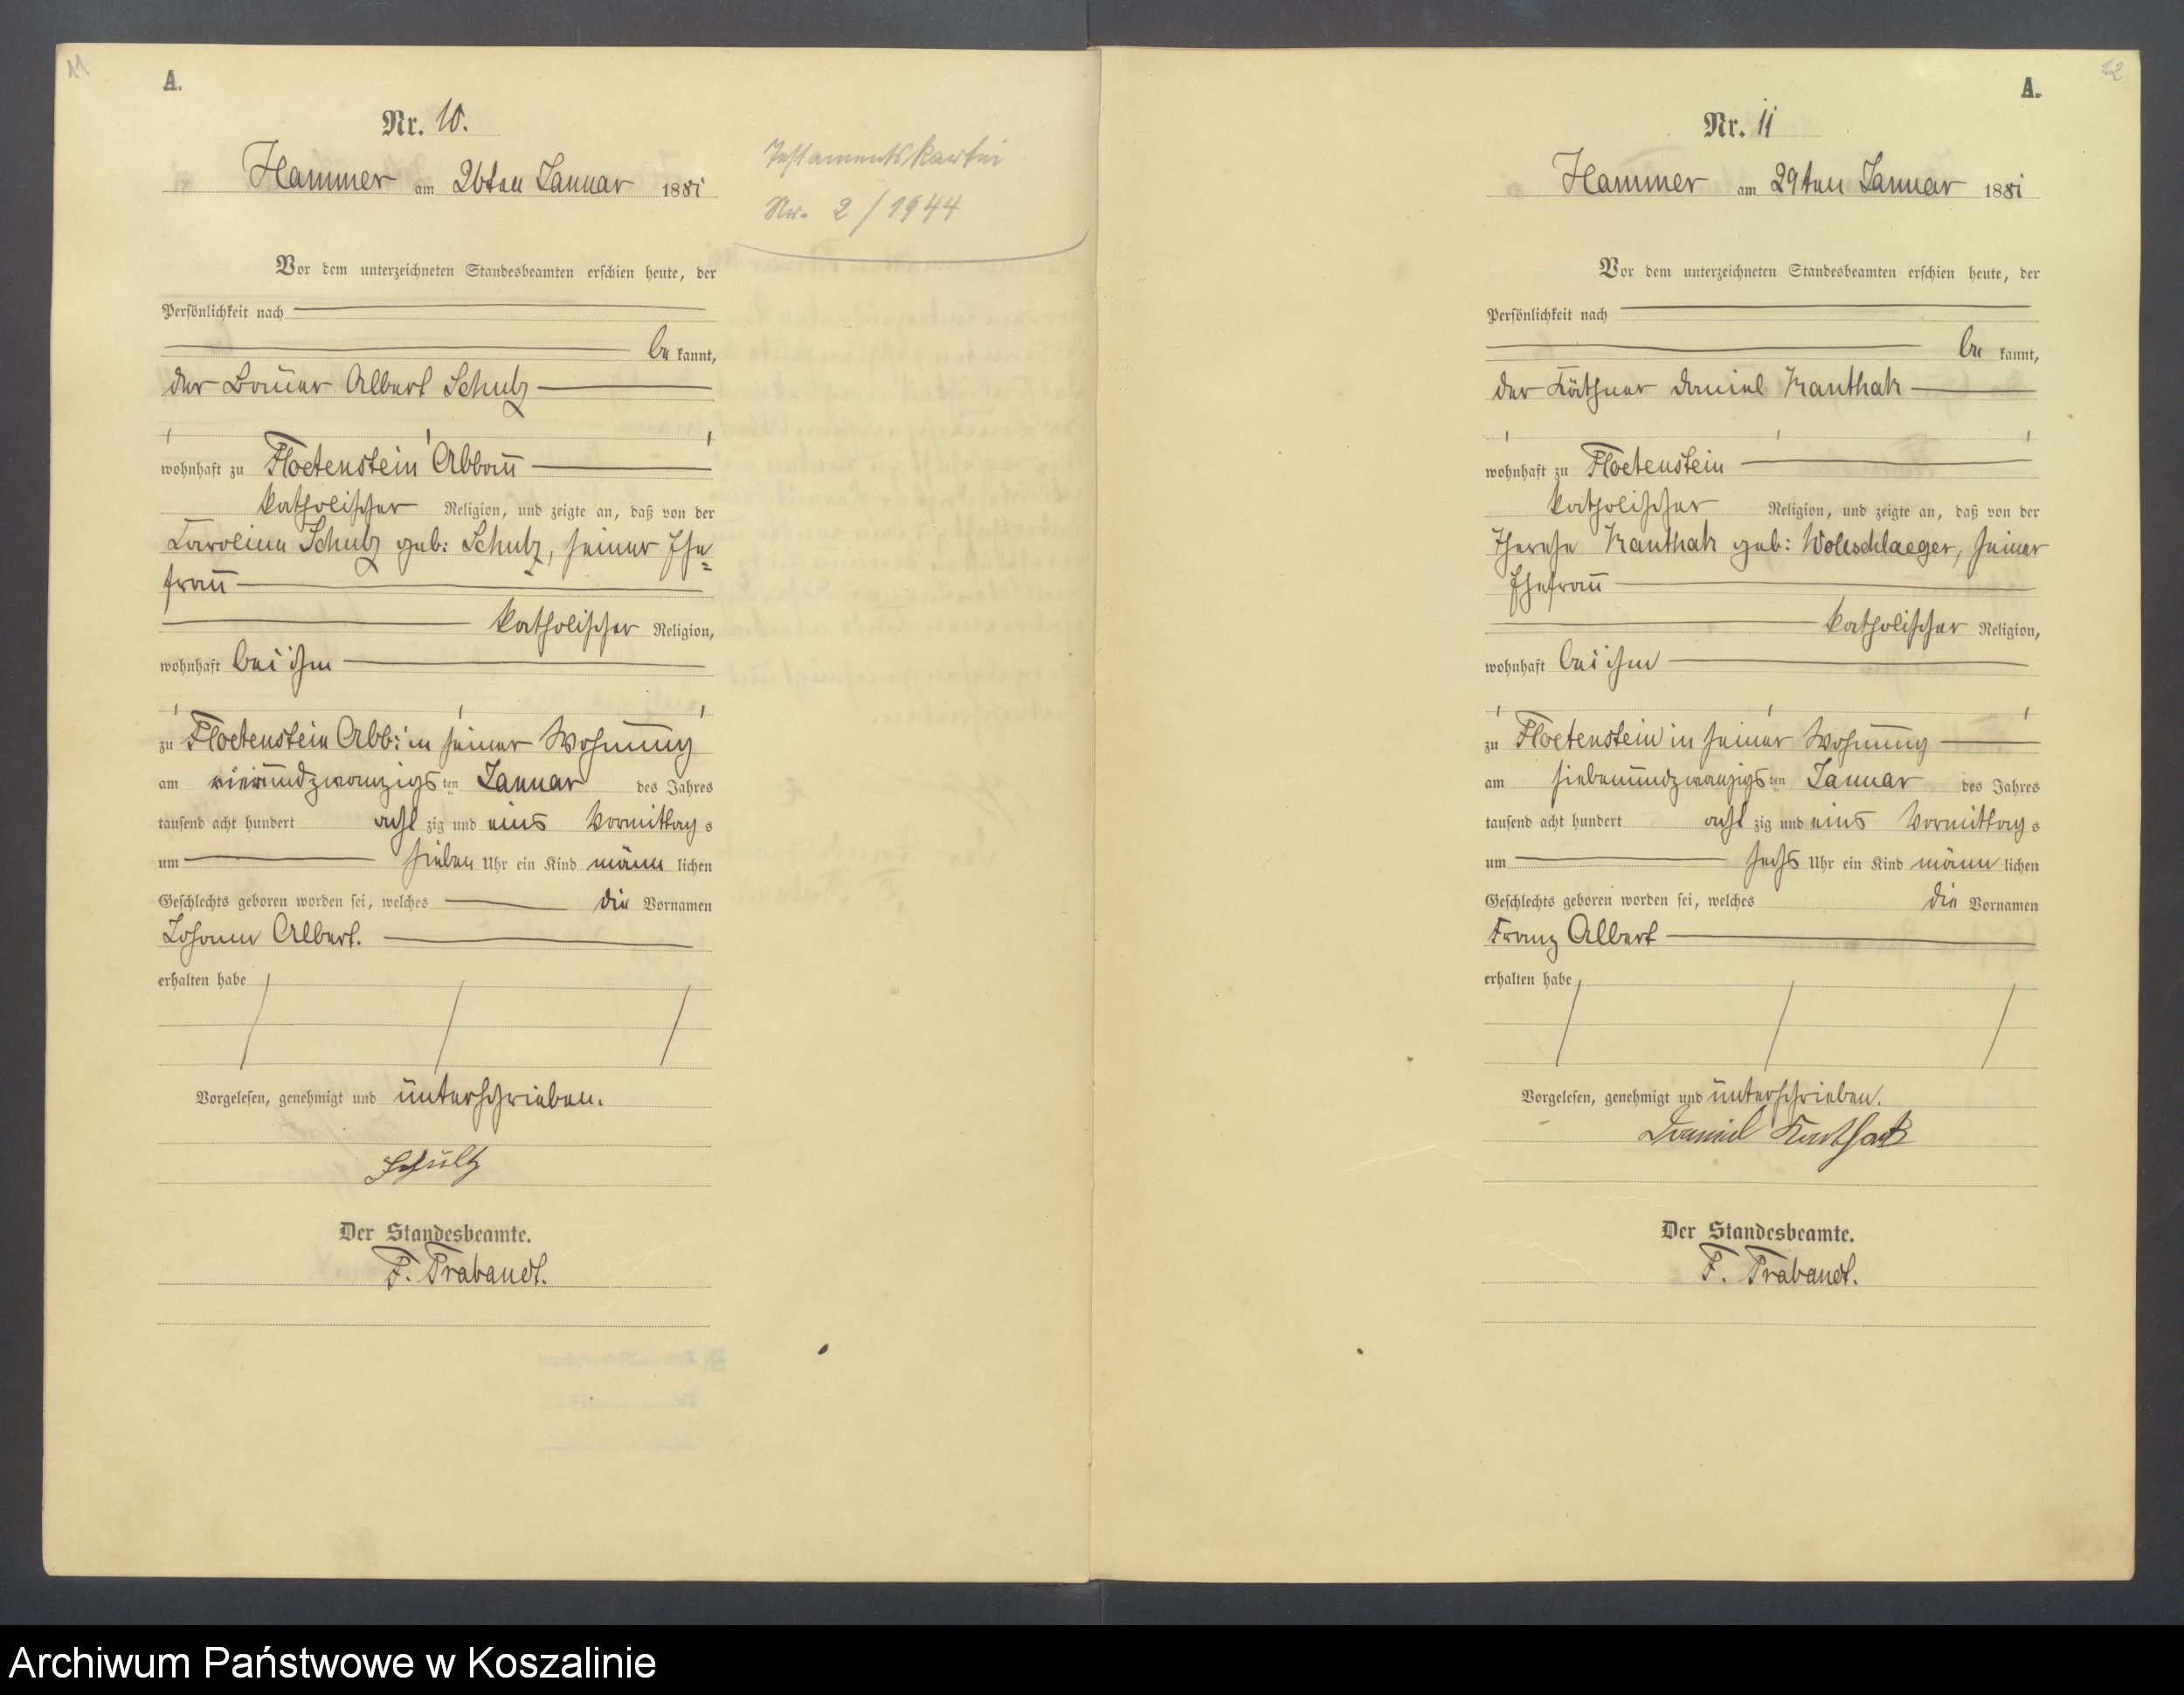 11
A.
Nr. 10.
Hammer am 26ten Januar 1881
Testamentskartei
Nr. 2/1944
Vor dem unterzeichneten Standesbeamten erschien heute, der
Persönlichkeit nach
be kannt,
der Bauer Albert Schulz
wohnhaft zu Floetenstein Abbau
katholischer Religion, und zeigte an, daß von der
Caroline Schulz geb: Schulz, seiner Ehe=
frau
katholischer Religion,
wohnhaft bei ihm
zu Floetenstein Abb: in seiner Wohnung
am vierundzwanzigs ten Januar des Jahres
tausend acht hundert acht zig und eins Vormittag s
um sieben Uhr ein Kind männ lichen
Geschlechts geboren worden sei, welches die Vornamen
Johann Albert.
erhalten habe
Vorgelesen, genehmigt und unterschrieben.
Schultz
Der Standesbeamte.
F. Trabandt.
12
A.
Nr. 11
Hammer am 29ten Januar 1881
Vor dem unterzeichneten Standesbeamten erschien heute, der
Persönlichkeit nach
be kannt,
der Käthner Daniel Kanthak
wohnhaft zu Floetenstein
katholischer Religion, und zeigte an, daß von der
Therese Kanthak geb: Wollschlaeger, seiner
Ehefrau
katholischer Religion,
wohnhaft bei ihm
zu Floetenstein in seiner Wohnung
am siebenundzwanzigs ten Januar des Jahres
tausend acht hundert acht zig und eins Vormittag s
um sechs Uhr ein Kind männ lichen
Geschlechts geboren worden sei, welches die Vornamen
Franz Albert
erhalten habe
Vorgelesen, genehmigt und unterschrieben.
Daniel Kanthak
Der Standesbeamte.
F. Trabandt.
Archiwum Państwowe w Koszalinie